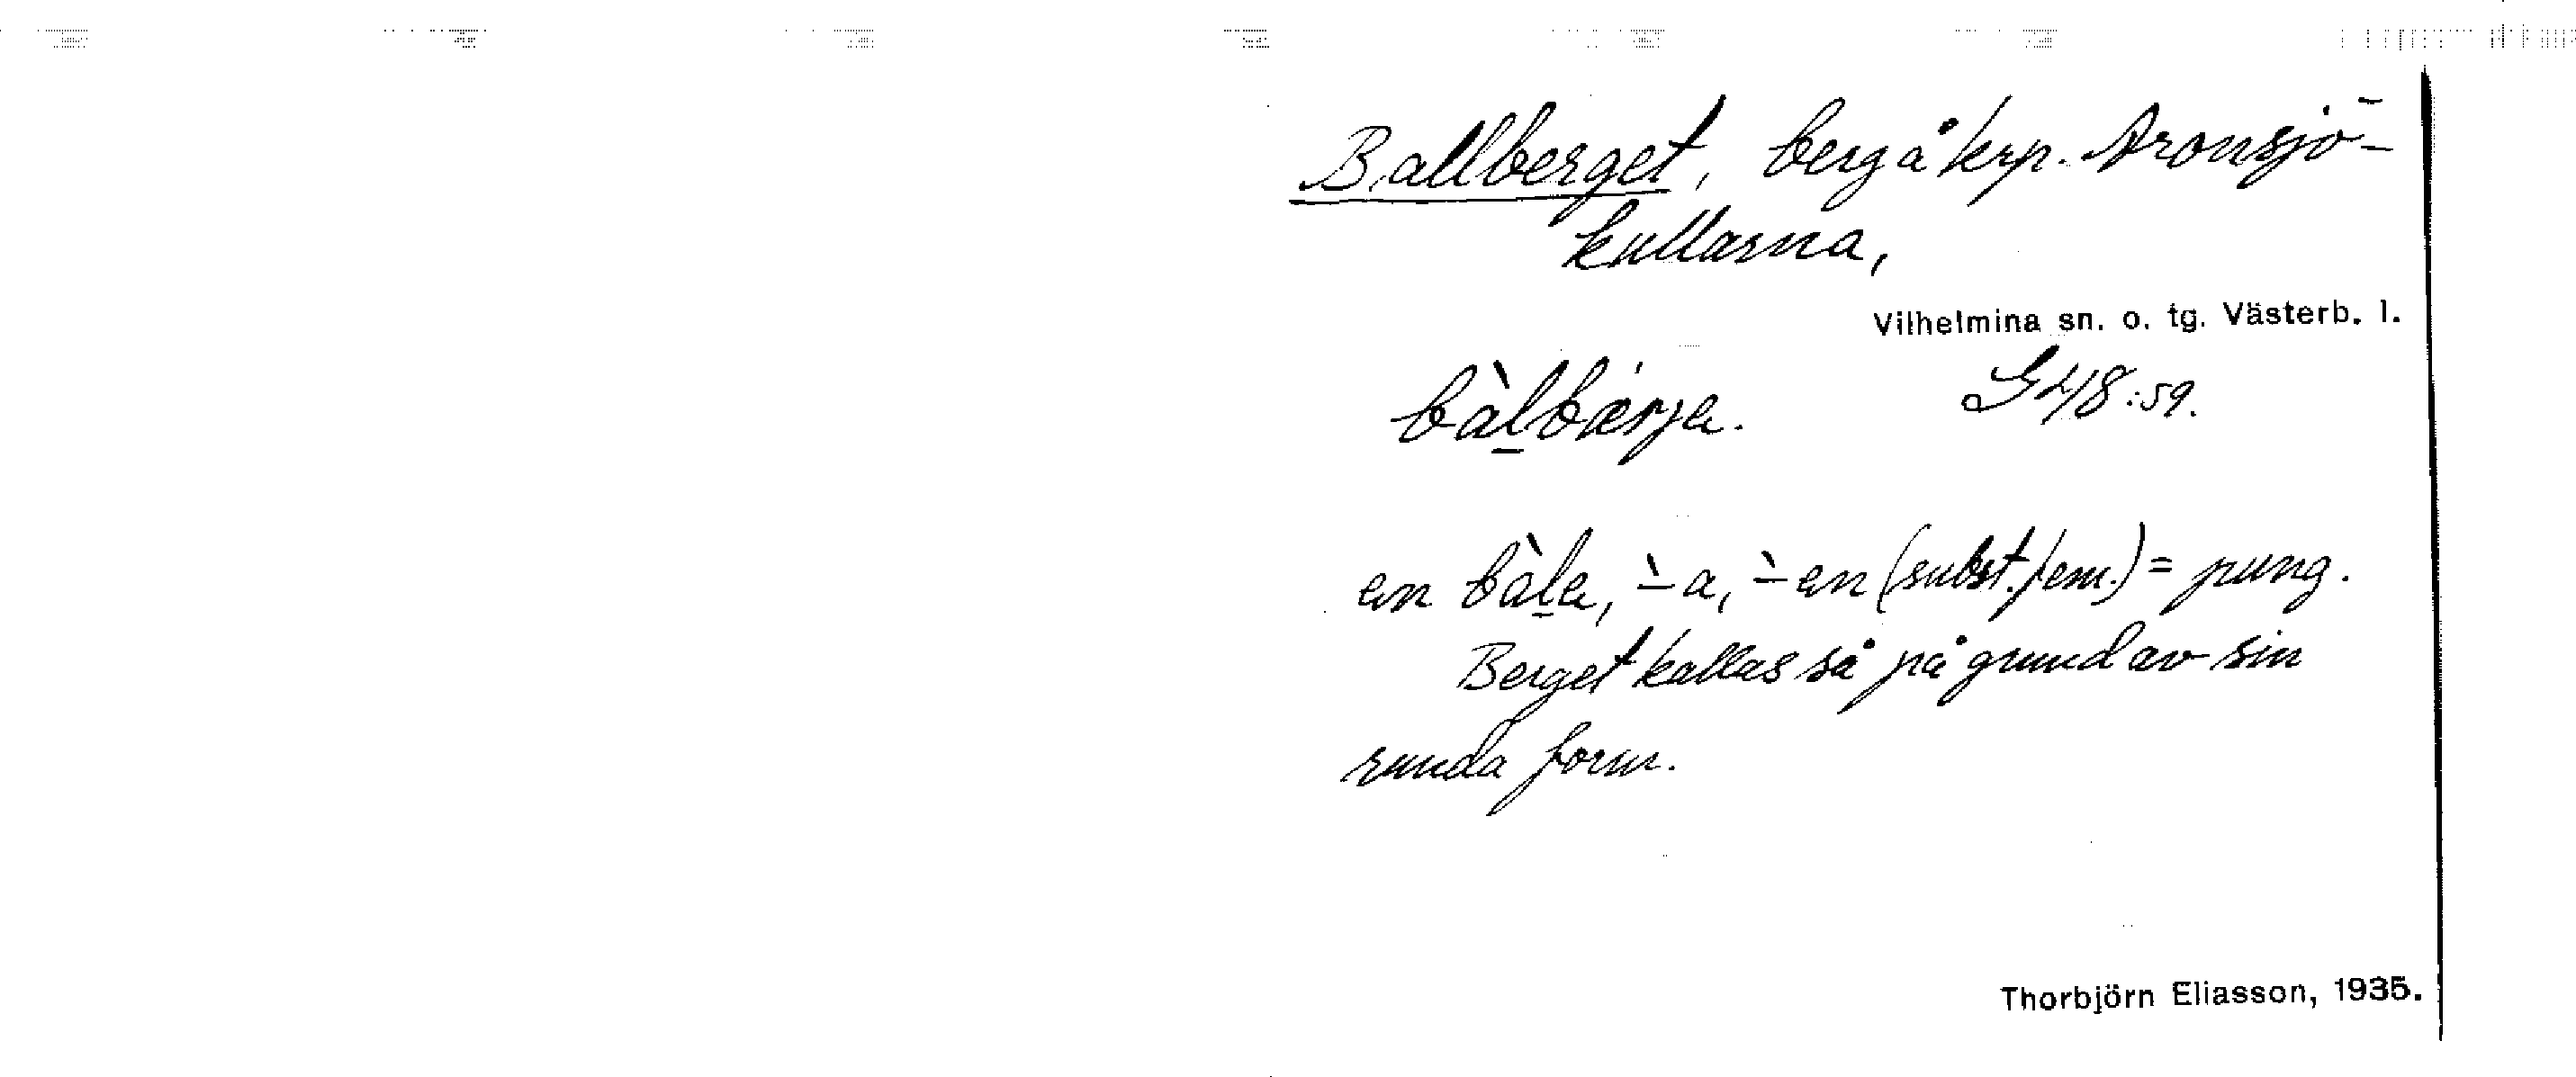 Ballberget, berg å krp. Aronsjö-
kullarna,
Vilhelmina sn. o. tg. Västerb. l.
bàlbærja. G 48:59.
en bàla, ̀-a, ̀-en (subst. fem.) = pung.
Berget kallas så på grund av sin
runda form.
Thorbjörn Eliasson, 1935.